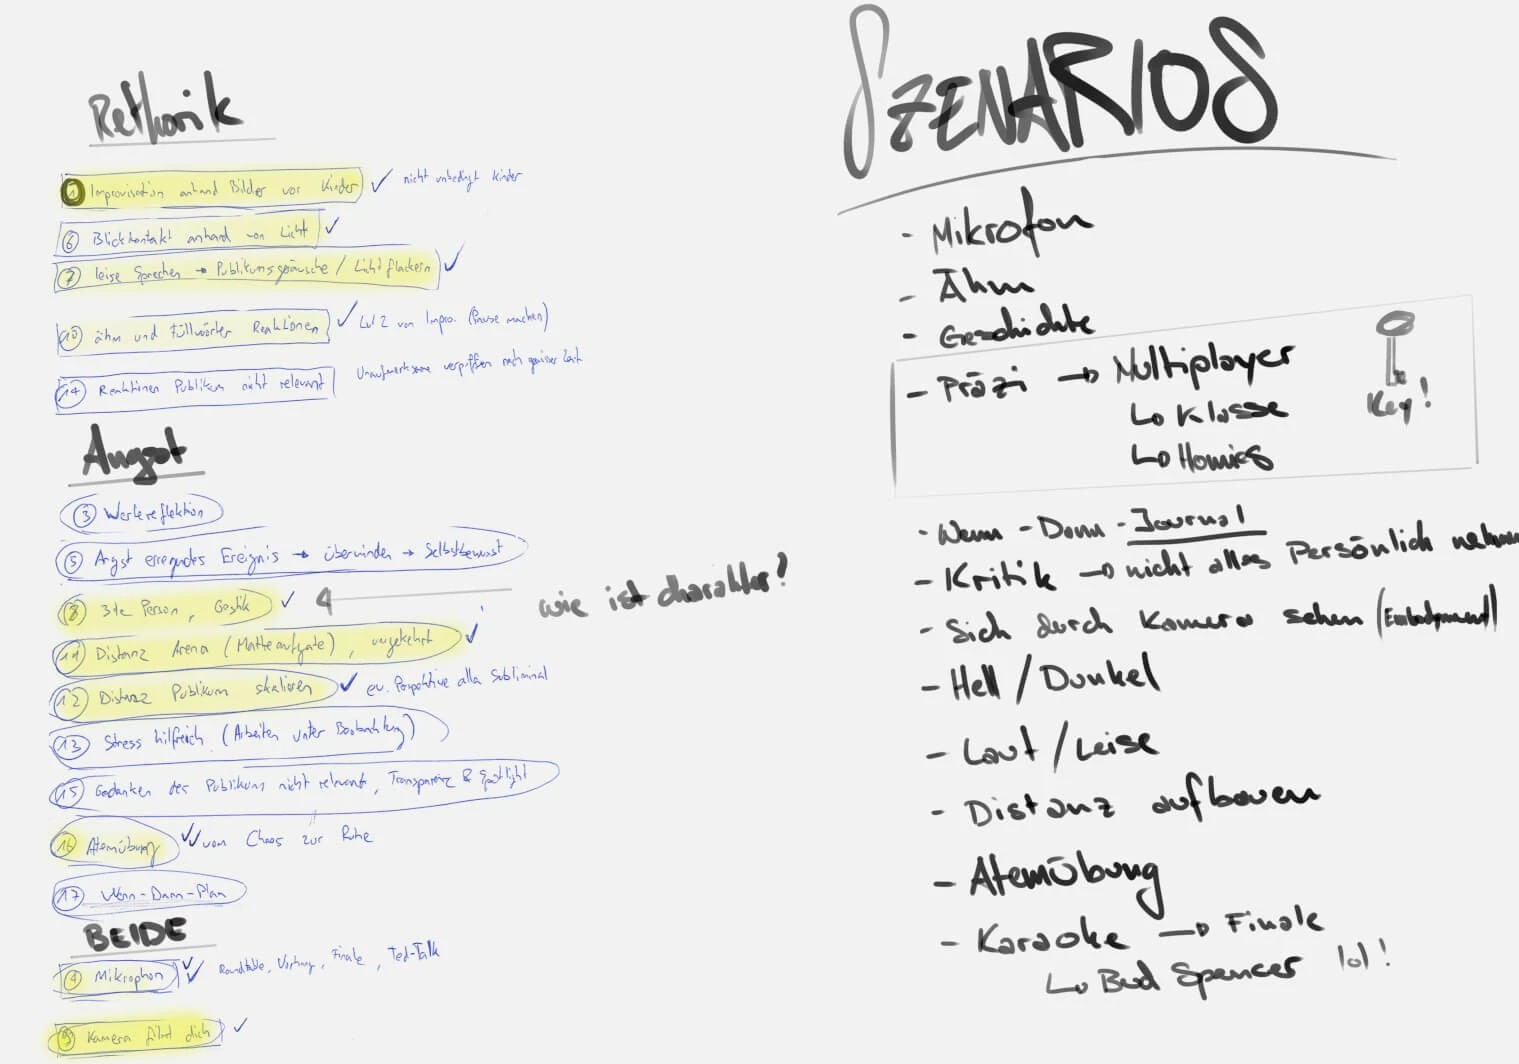 Rethorik
1 Improvisation anhand Bilder vor Kinder ✓ nicht unbedingt Kinder
6 Blickkontakt anhand von Licht ✓
7 leise Sprechen → Publikumsgeräusche / Licht flackern ✓
10 ähm und Füllwörter Reaktionen ✓ Lvl 2 von Impro. (Pause machen)
14 Reaktionen Publikum nicht relevant Unaufmerksame verpuffen nach gewisser Zeit
Angst
3 Wertereflektion
5 Angst erregendes Ereignis → überwinden → Selbstbewusst
8 3te Person, Gestik ✓ wie ist charakter?
11 Distanz Arena (Matheaufgabe), umgekehrt ✓
12 Distanz Publikum skalieren ✓ ev. Perspektive alla Subliminal
13 Stress hilfreich (Arbeiten unter Beobachtung)
15 Gedanken des Publikums nicht relevant, Transparenz & Spotlight
16 Atemübung ✓✓ vom Chaos zur Ruhe
17 Wenn-Dann-Plan
BEIDE
Mikrophon ✓✓ Roundtable, Vortrag, Finale, Ted-Talk
9 Kamera filmt dich ✓
SZENARIOS
- Mikrofon
- Ähm
- Geschichte
- Präzi → Multiplayer
↳ Klasse
↳ Homies
Key!
- Wenn-Dann-Journal
- Kritik → nicht alles Persönlich nehmen
- Sich durch Kamera sehen (Embodyment)
- Hell / Dunkel
- Laut / Leise
- Distanz aufbauen
- Atemübung
- Karaoke → Finale
↳ Bud Spencer lol!